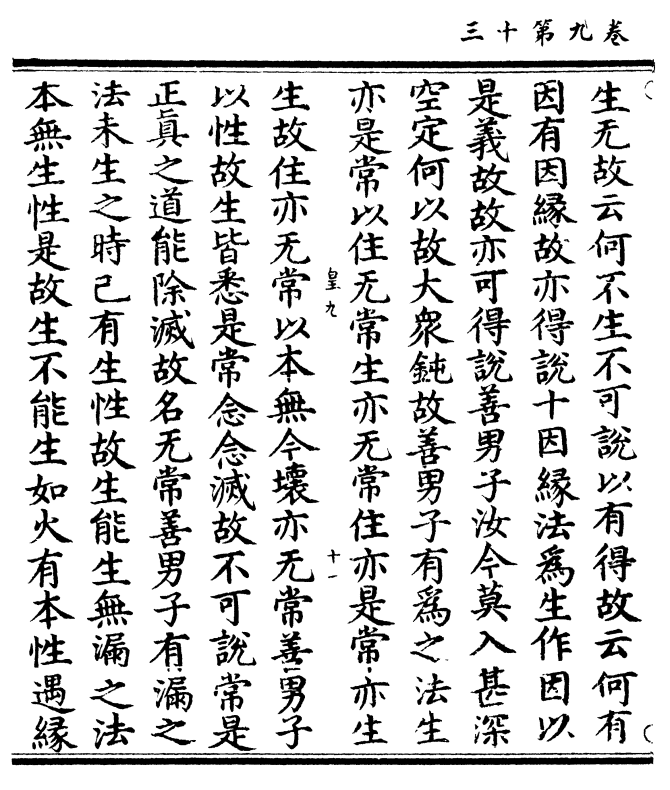 三十第九卷
生无故云何不生不可說以有得故云何有
因有因縁故亦得說十因縁法爲生作因以
是義故故亦可得說善男子汝今莫入甚深
空定何以故大衆鈍故善男子有爲之法生
亦是常以住无常生亦无常住亦是常亦生
皇九
十一
生故住亦无常以本無今壞亦无常善男子
以性故生皆悉是常念念滅故不可說常是
正眞之道能除滅故名无常善男子有漏之
法未生之時已有生性故生能生無漏之法
本無生性是故生不能生如火有本性遇縁